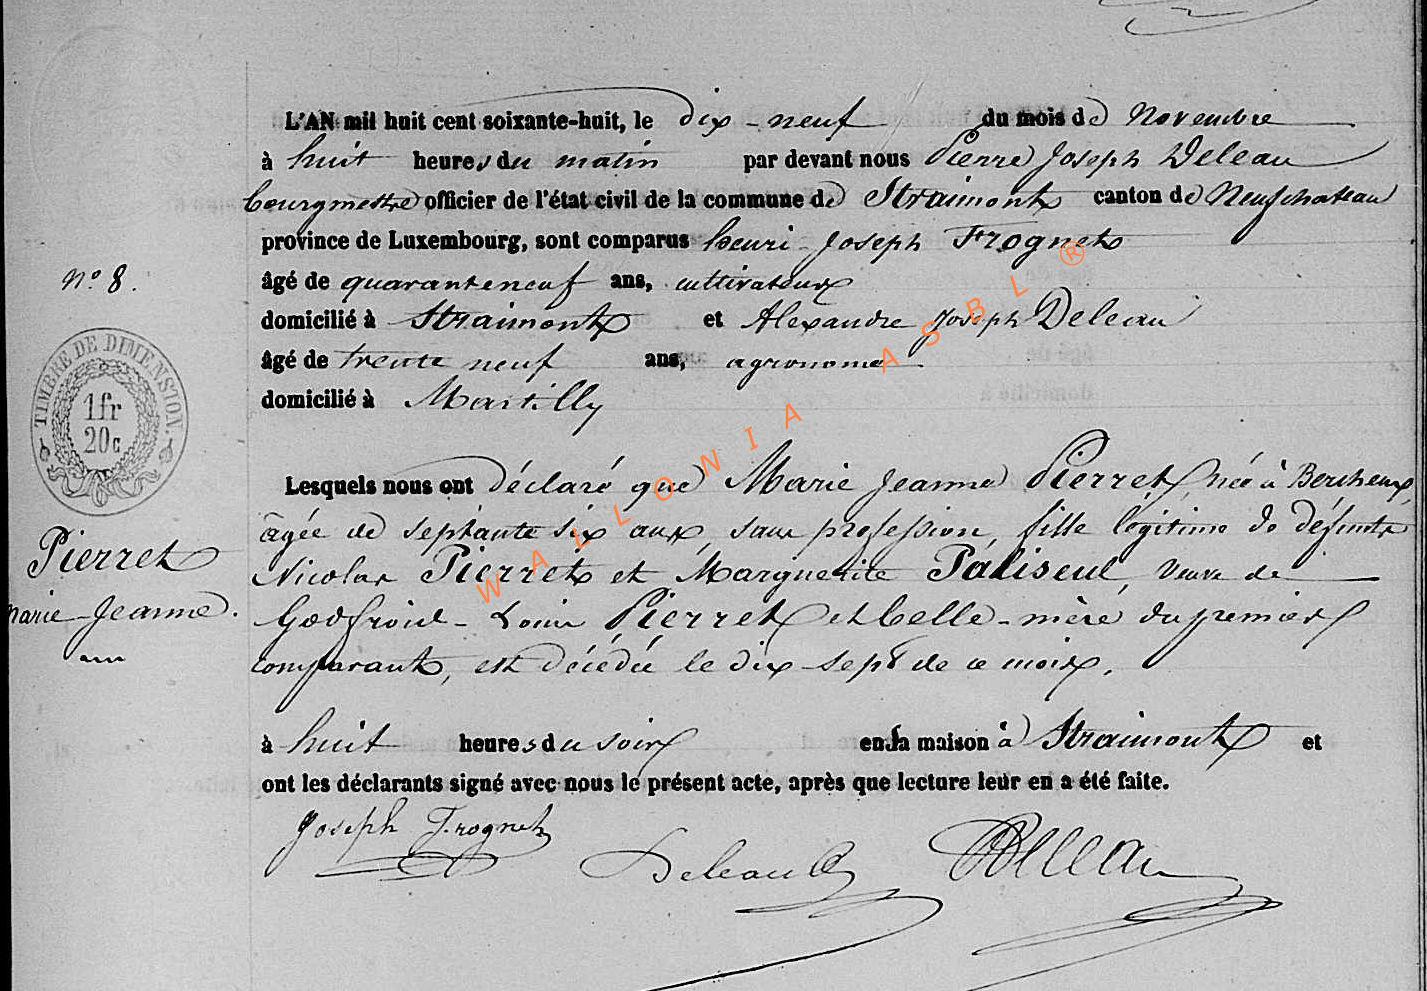 L'AN mil huit cent soixante-huit, le dix-neuf du mois de Novembre
à huit heures du matin par devant nous Pierre Joseph Deleau
bourgmestre officier de l'état civil de la commune de Straimont canton de Neufchateau
province de Luxembourg, sont comparus henri-Joseph Frognet
No. 8.
âgé de quaranteneuf ans, cultivateur
domicilié à Straimont et Alexandre Joseph Deleau
âgé de trente neuf ans, agronome
domicilié à Martilly
TIMBRE DE DIMENSION.
1fr
20c
Lesquels nous ont déclaré que Marie Jeanne Pierret, née à Bercheux,
âgée de septante six ans, sans profession, fille légitime de défunts
Pierret
Nicolas Pierret et Marguerite Paliseul, veuve de
Marie-Jeanne.
Godfroid-Louis Pierret et belle-mère du premier
comparant, est décédée le dix-sept de ce mois,
à huit heures du soir en sa maison à Straimont et
ont les déclarants signé avec nous le présent acte, après que lecture leur en a été faite.
Joseph Frognet
Deleau
Deleau
WALLONIA ASBL ®